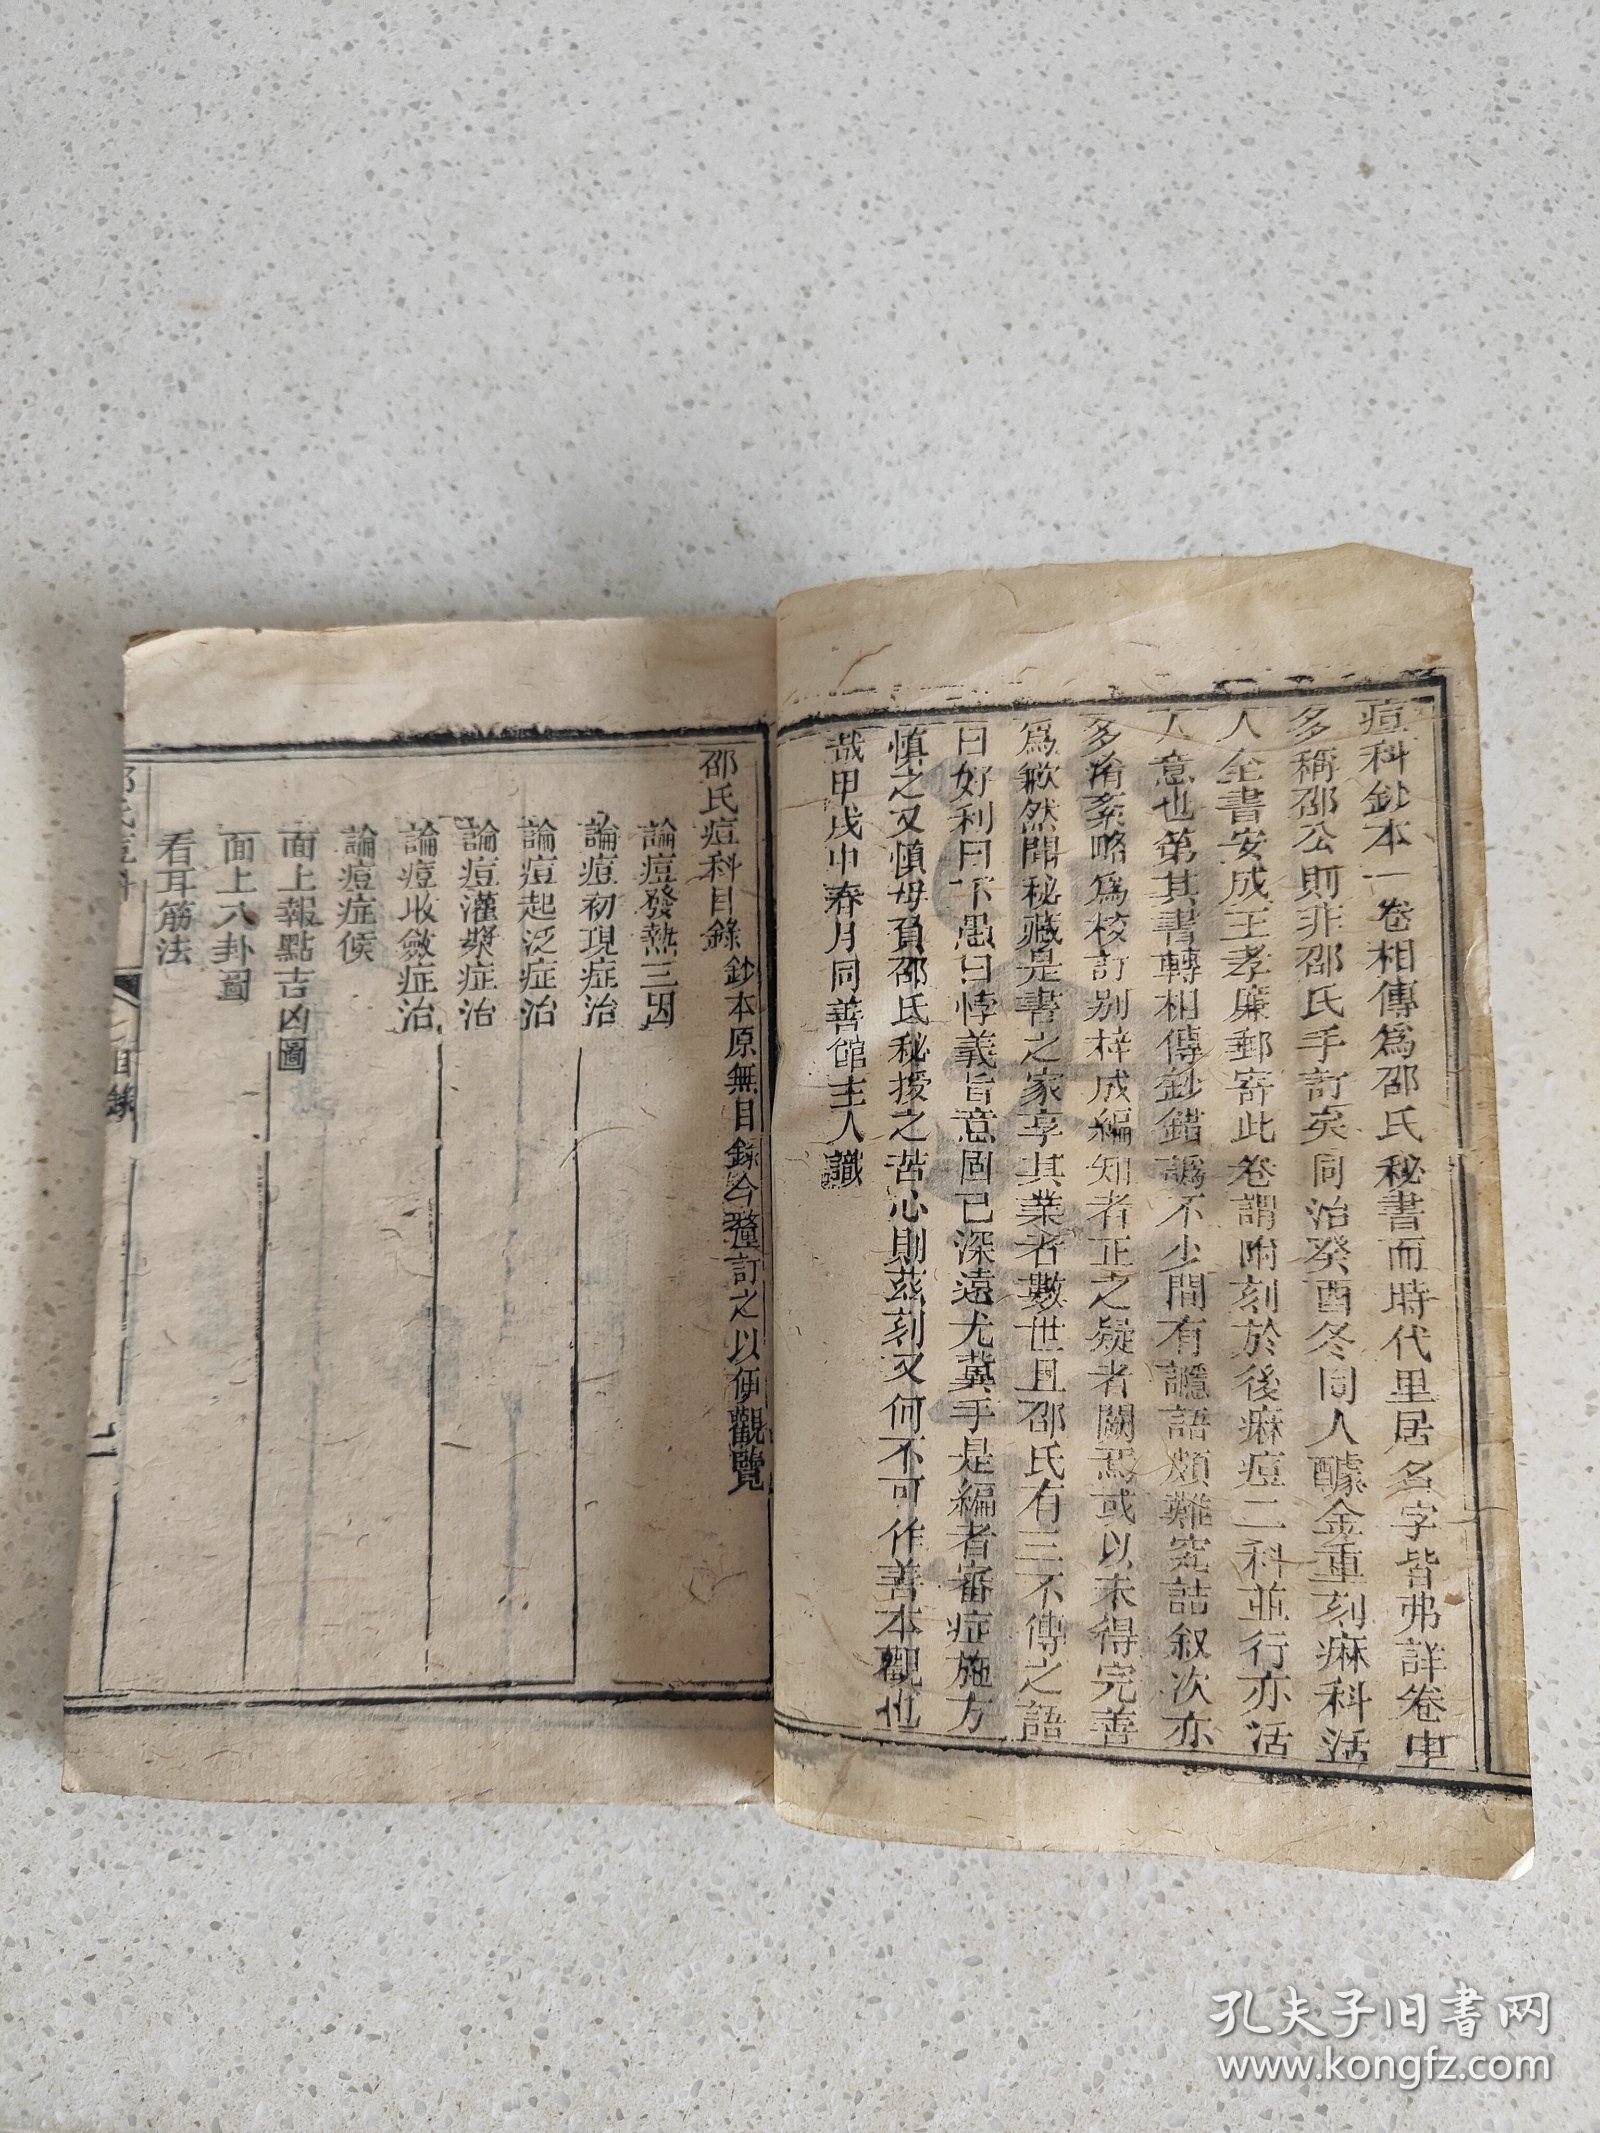 痘科鈔本一卷相傳爲邵氏秘書而時代里居名字皆弗詳卷中
多稱邵公則非邵氏手訂矣同治癸酉冬同人醵金重刻麻科活
人全書安成王孝廉郵寄此卷謂附刻於後麻痘二科並行亦活
人意也第其書轉相傳鈔錯譌不少間有讔語頗難究詰叙次亦
多淆紊略爲校訂别梓成編知者正之疑者闕焉或以未得完善
爲歉然聞秘藏是書之家享其業者數世且邵氏有三不傳之語
曰好利曰下愚曰悖義旨意固已深遠尤冀手是編者審症施方
慎之又慎毋負邵氏秘授之苦心則茲刻又何不可作善本觀也
哉甲戌中春月同善館主人識
邵氏痘科目錄 鈔本原無目錄今釐訂之以便觀覽
論痘發熱三因
論痘初現症治
論痘起泛症治
論痘灌漿症治
論痘收斂症治
論痘症候
面上報點吉凶圖
面上八卦圖
看耳筋法
邵氏痘科
目錄
孔夫子旧书网
www.kongfz.com